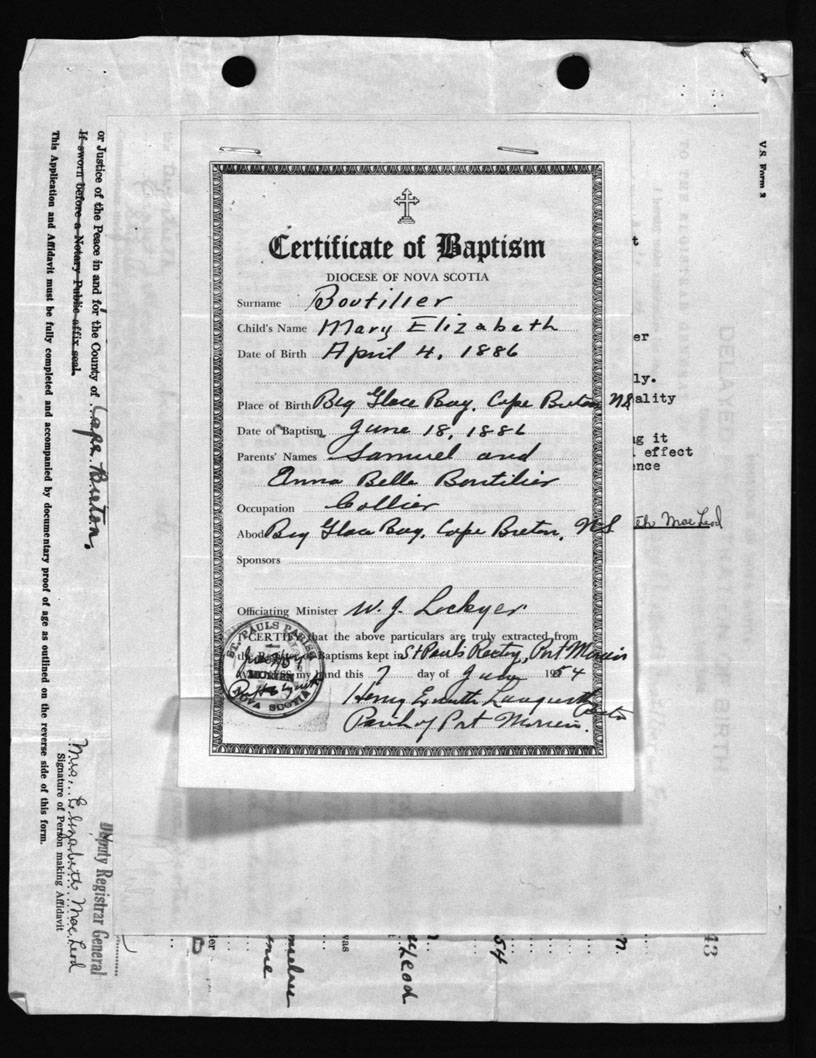 Certificate of Baptism
DIOCESE OF NOVA SCOTIA
Surname Boutilier
Child's Name Mary Elizabeth
Date of Birth April 4, 1886
Place of Birth Big Glace Bay, Cape Breton NS
Date of Baptism June 18, 1886
Parents' Names Samuel and
Anna Belle Boutilier
Occupation Collier
Abod Big Glace Bay, Cape Breton, NS
Sponsors
Officiating Minister W. J. Lockyer
CERTIFY that the above particulars are truly extracted from
the Baptisms kept in St Pauls Rectory, Port Morien
my hand this 7 day of June 1954
Henry
Parish of Port Morien.
ST. PAULS PARISH
MORIEN
NOVA SCOTIA
V.S. Form 2
t
er
ly.
ality
g it
effect
ence
th MacLeod
43
or Justice of the Peace in and for the County of Cape Breton.
If sworn before a Notary Public affix seal.
This Application and Affidavit must be fully completed and accompanied by documentary proof of age as outlined on the reverse side of this form.
Mrs. Elizabeth MacLeod
Signature of Person making Affidavit
Deputy Registrar General
was
Leod
54